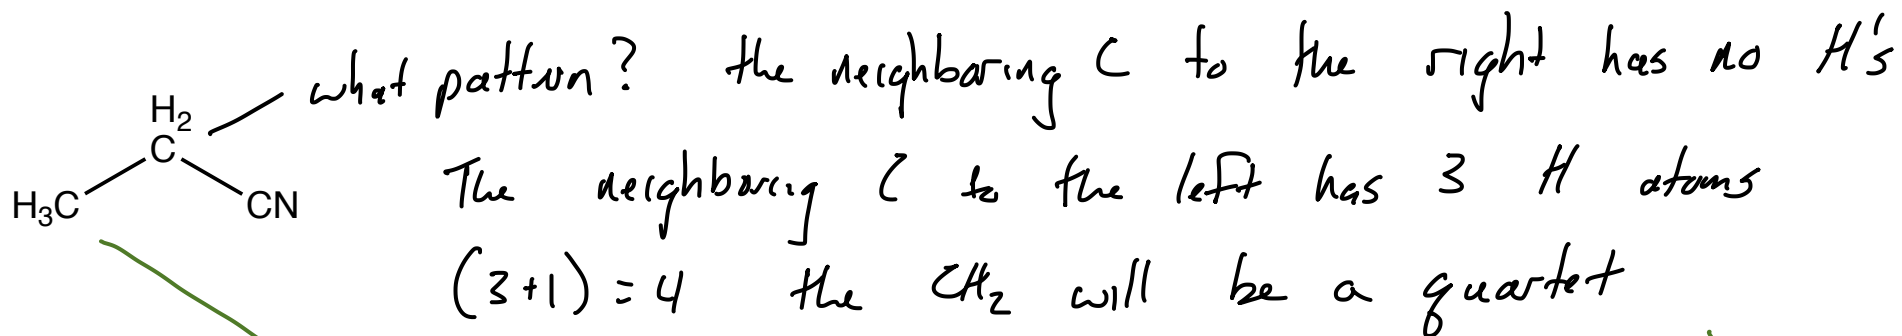 what pattern? the neighboring C to the right has no H's
H₂
C
H₃C
CN
The neighboring C to the left has 3 H atoms
(3+1) = 4 the CH₂ will be a quartet